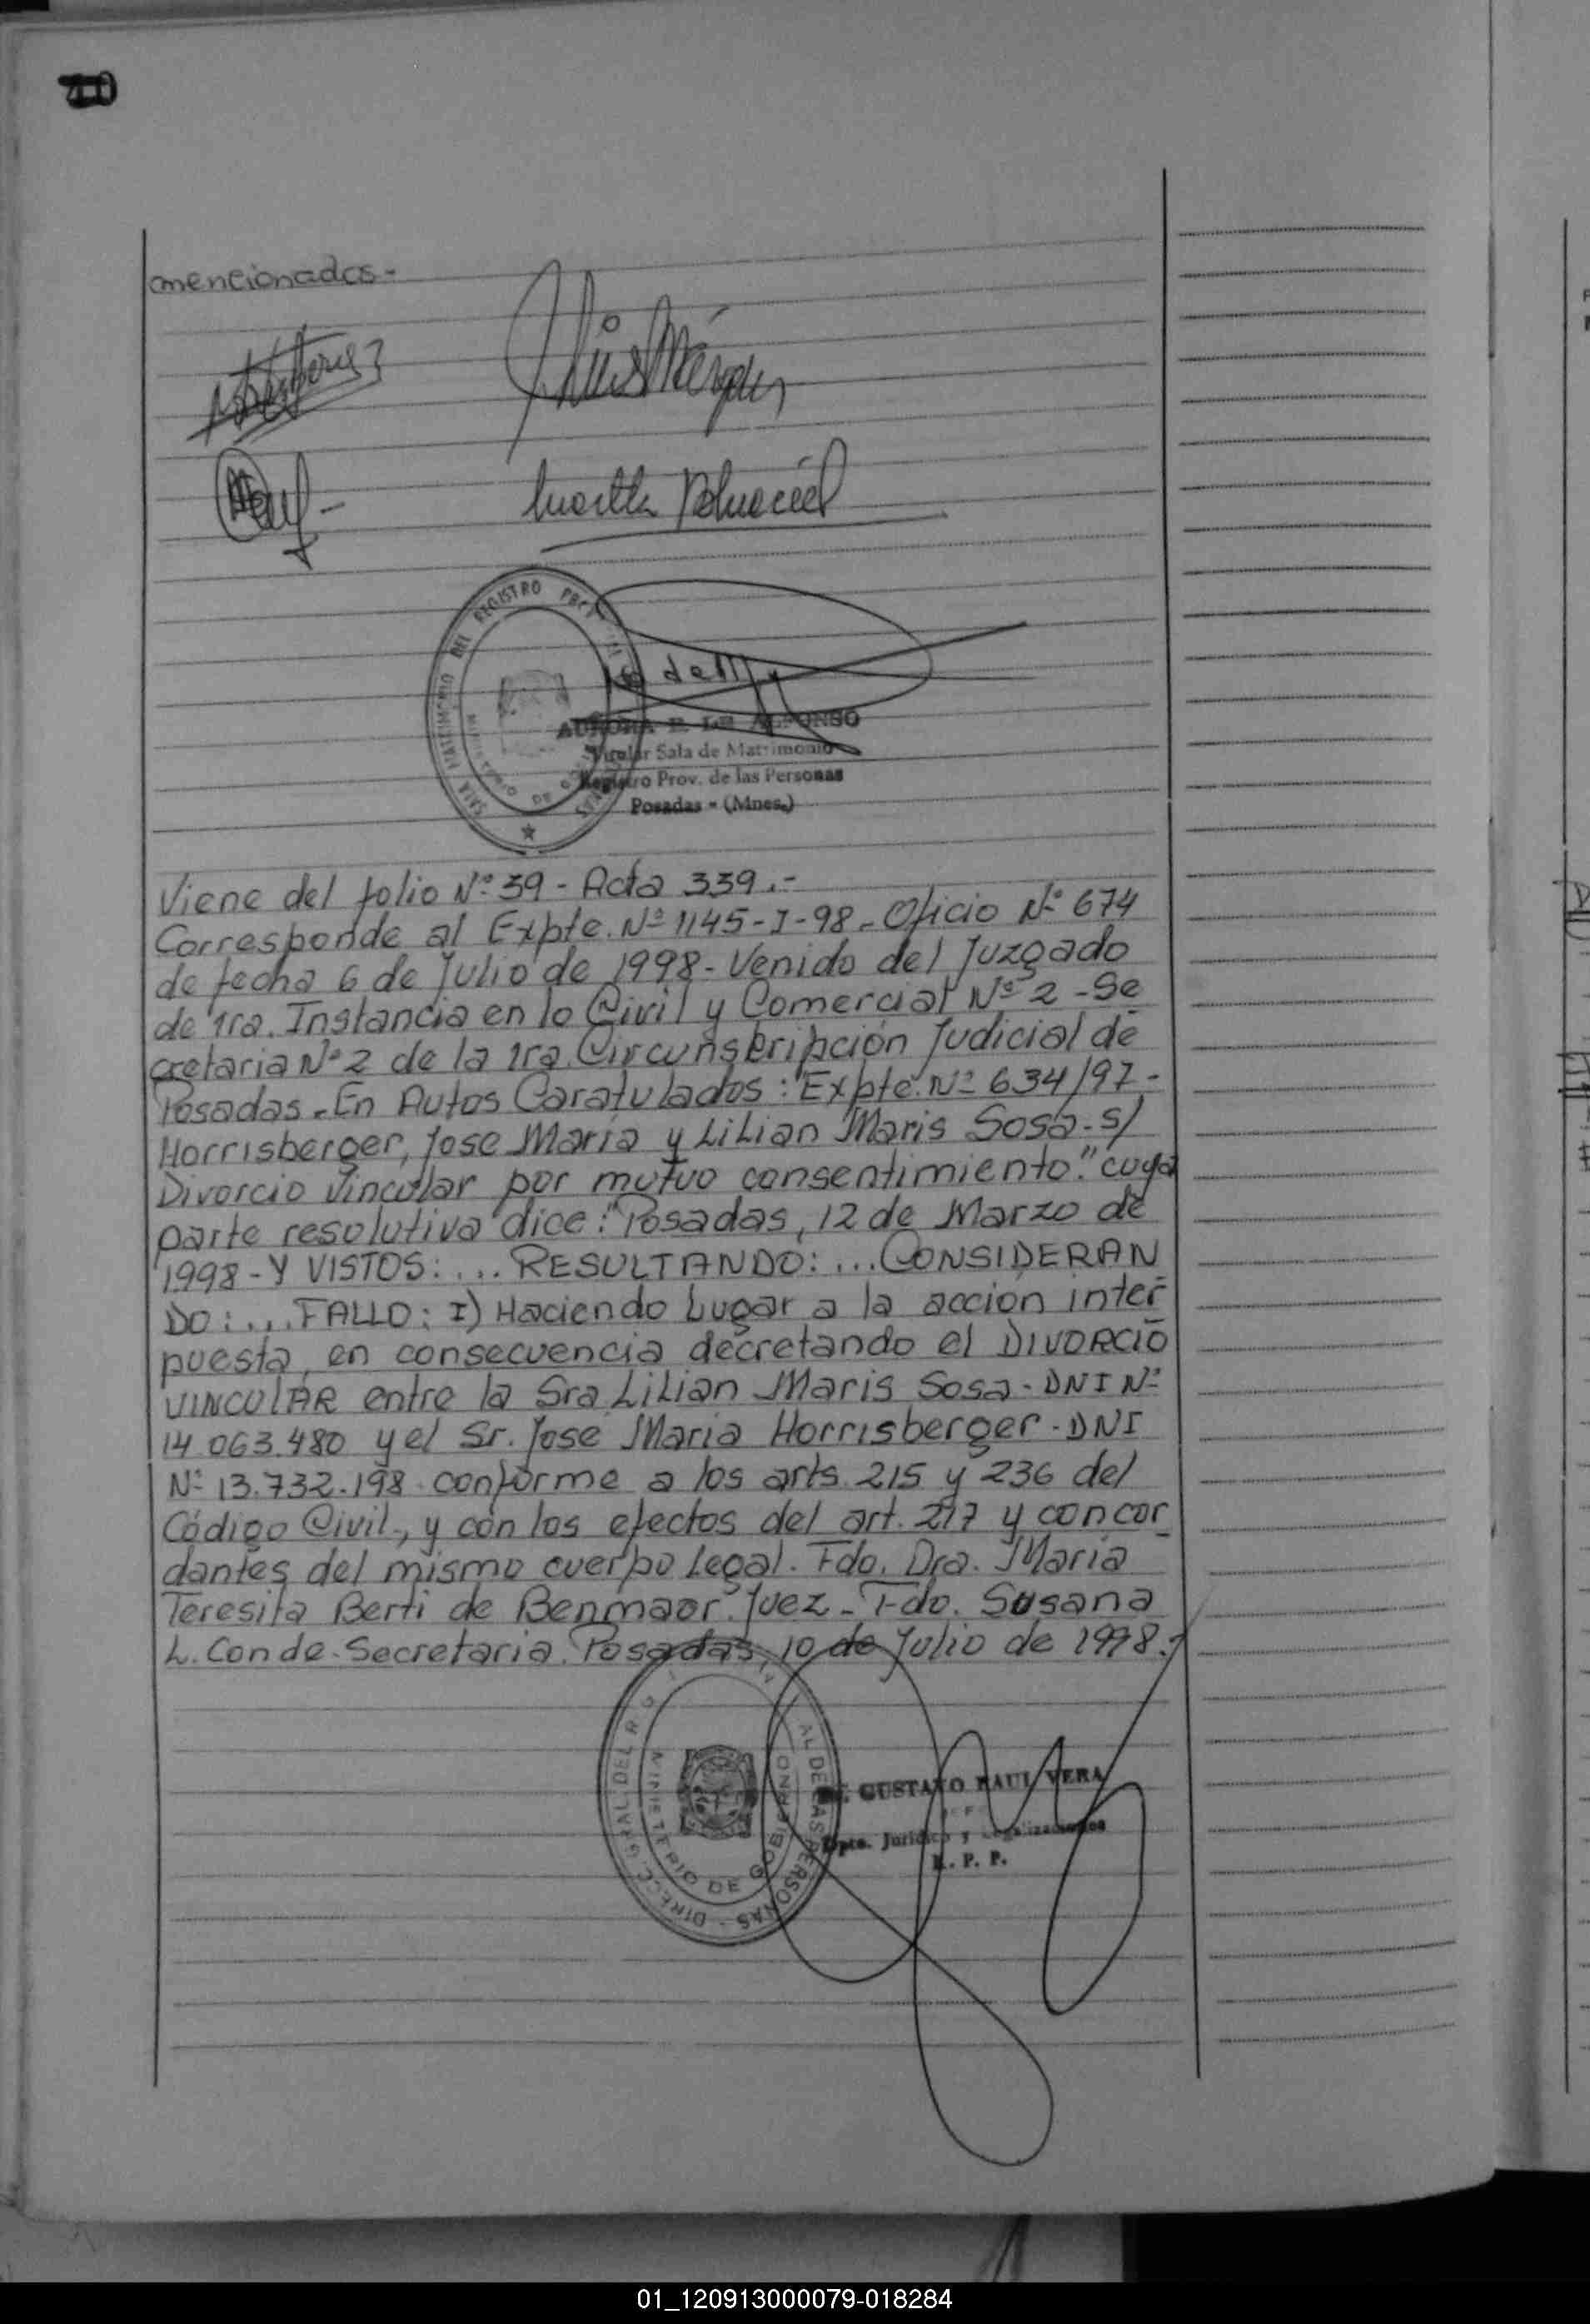 mencionados-
Luis Márquez
REGISTRO
SALA MATRIMONIO DEL
AURORA E. DE ALFONSO
Titular Sala de Matrimonio
Registro Prov. de las Personas
Posadas - (Mnes.)
Viene del folio Nº 39 - Acta 339.-
Corresponde al Expte. Nº 1145-I-98-Oficio Nº 674
de fecha 6 de Julio de 1998-Venido del Juzgado
de 1ra. Instancia en lo Civil y Comercial Nº 2-Se
cretaria Nº 2 de la 1ra. Circunskripción Judicial de
Posadas-En Autos Caratulados: "Expte. Nº 634/97-
Horrisberger, Jose Maria y Lilian Maris Sosa-S/
Divorcio Vincular por mutuo consentimiento." cuya
parte resolutiva dice: "Posadas, 12 de Marzo de
1998-Y VISTOS: ... RESULTANDO: ... CONSIDERAN
DO: ... FALLO: I) Haciendo Lugar a la accion inter-
puesta, en consecuencia decretando el DIVORCIO
VINCULAR entre la Sra Lilian Maris Sosa-DNI Nº
14.063.480 y el Sr. Jose Maria Horrisberger-DNI
Nº 13.732.198 conforme a los arts. 215 y 236 del
Código Civil, y con los efectos del art. 217 y concor_
dantes del mismo cuerpo Legal. Fdo. Dra. Maria
Teresita Berti de Benmaor. Juez-Fdo. Susana
L. Conde-Secretaria. Posadas, 10 de Julio de 1998.-
DIRECC. GRAL. DEL R AL DE LAS PERSONAS
MINISTERIO DE GOBIERNO
GUSTAVO RAUL VERA
Dpto. Jurídico y Legalizaciones
R. P. P.
01_120913000079-018284